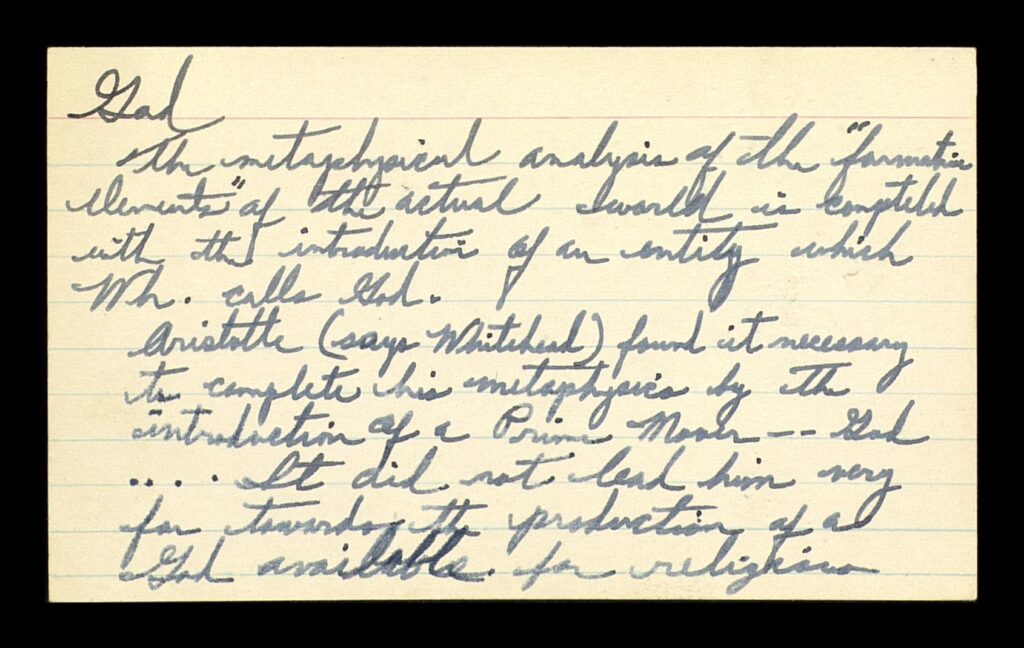 God
The metaphysical analysis of the "formative
elements" of the actual world is completed
with the introduction of an entity which
Wh. calls God.
Aristotle (says Whitehead) found it necessary
to complete his metaphysics by the
introduction of a Prime Mover -- God
.... It did not lead him very
far towards the production of a
God available for religious